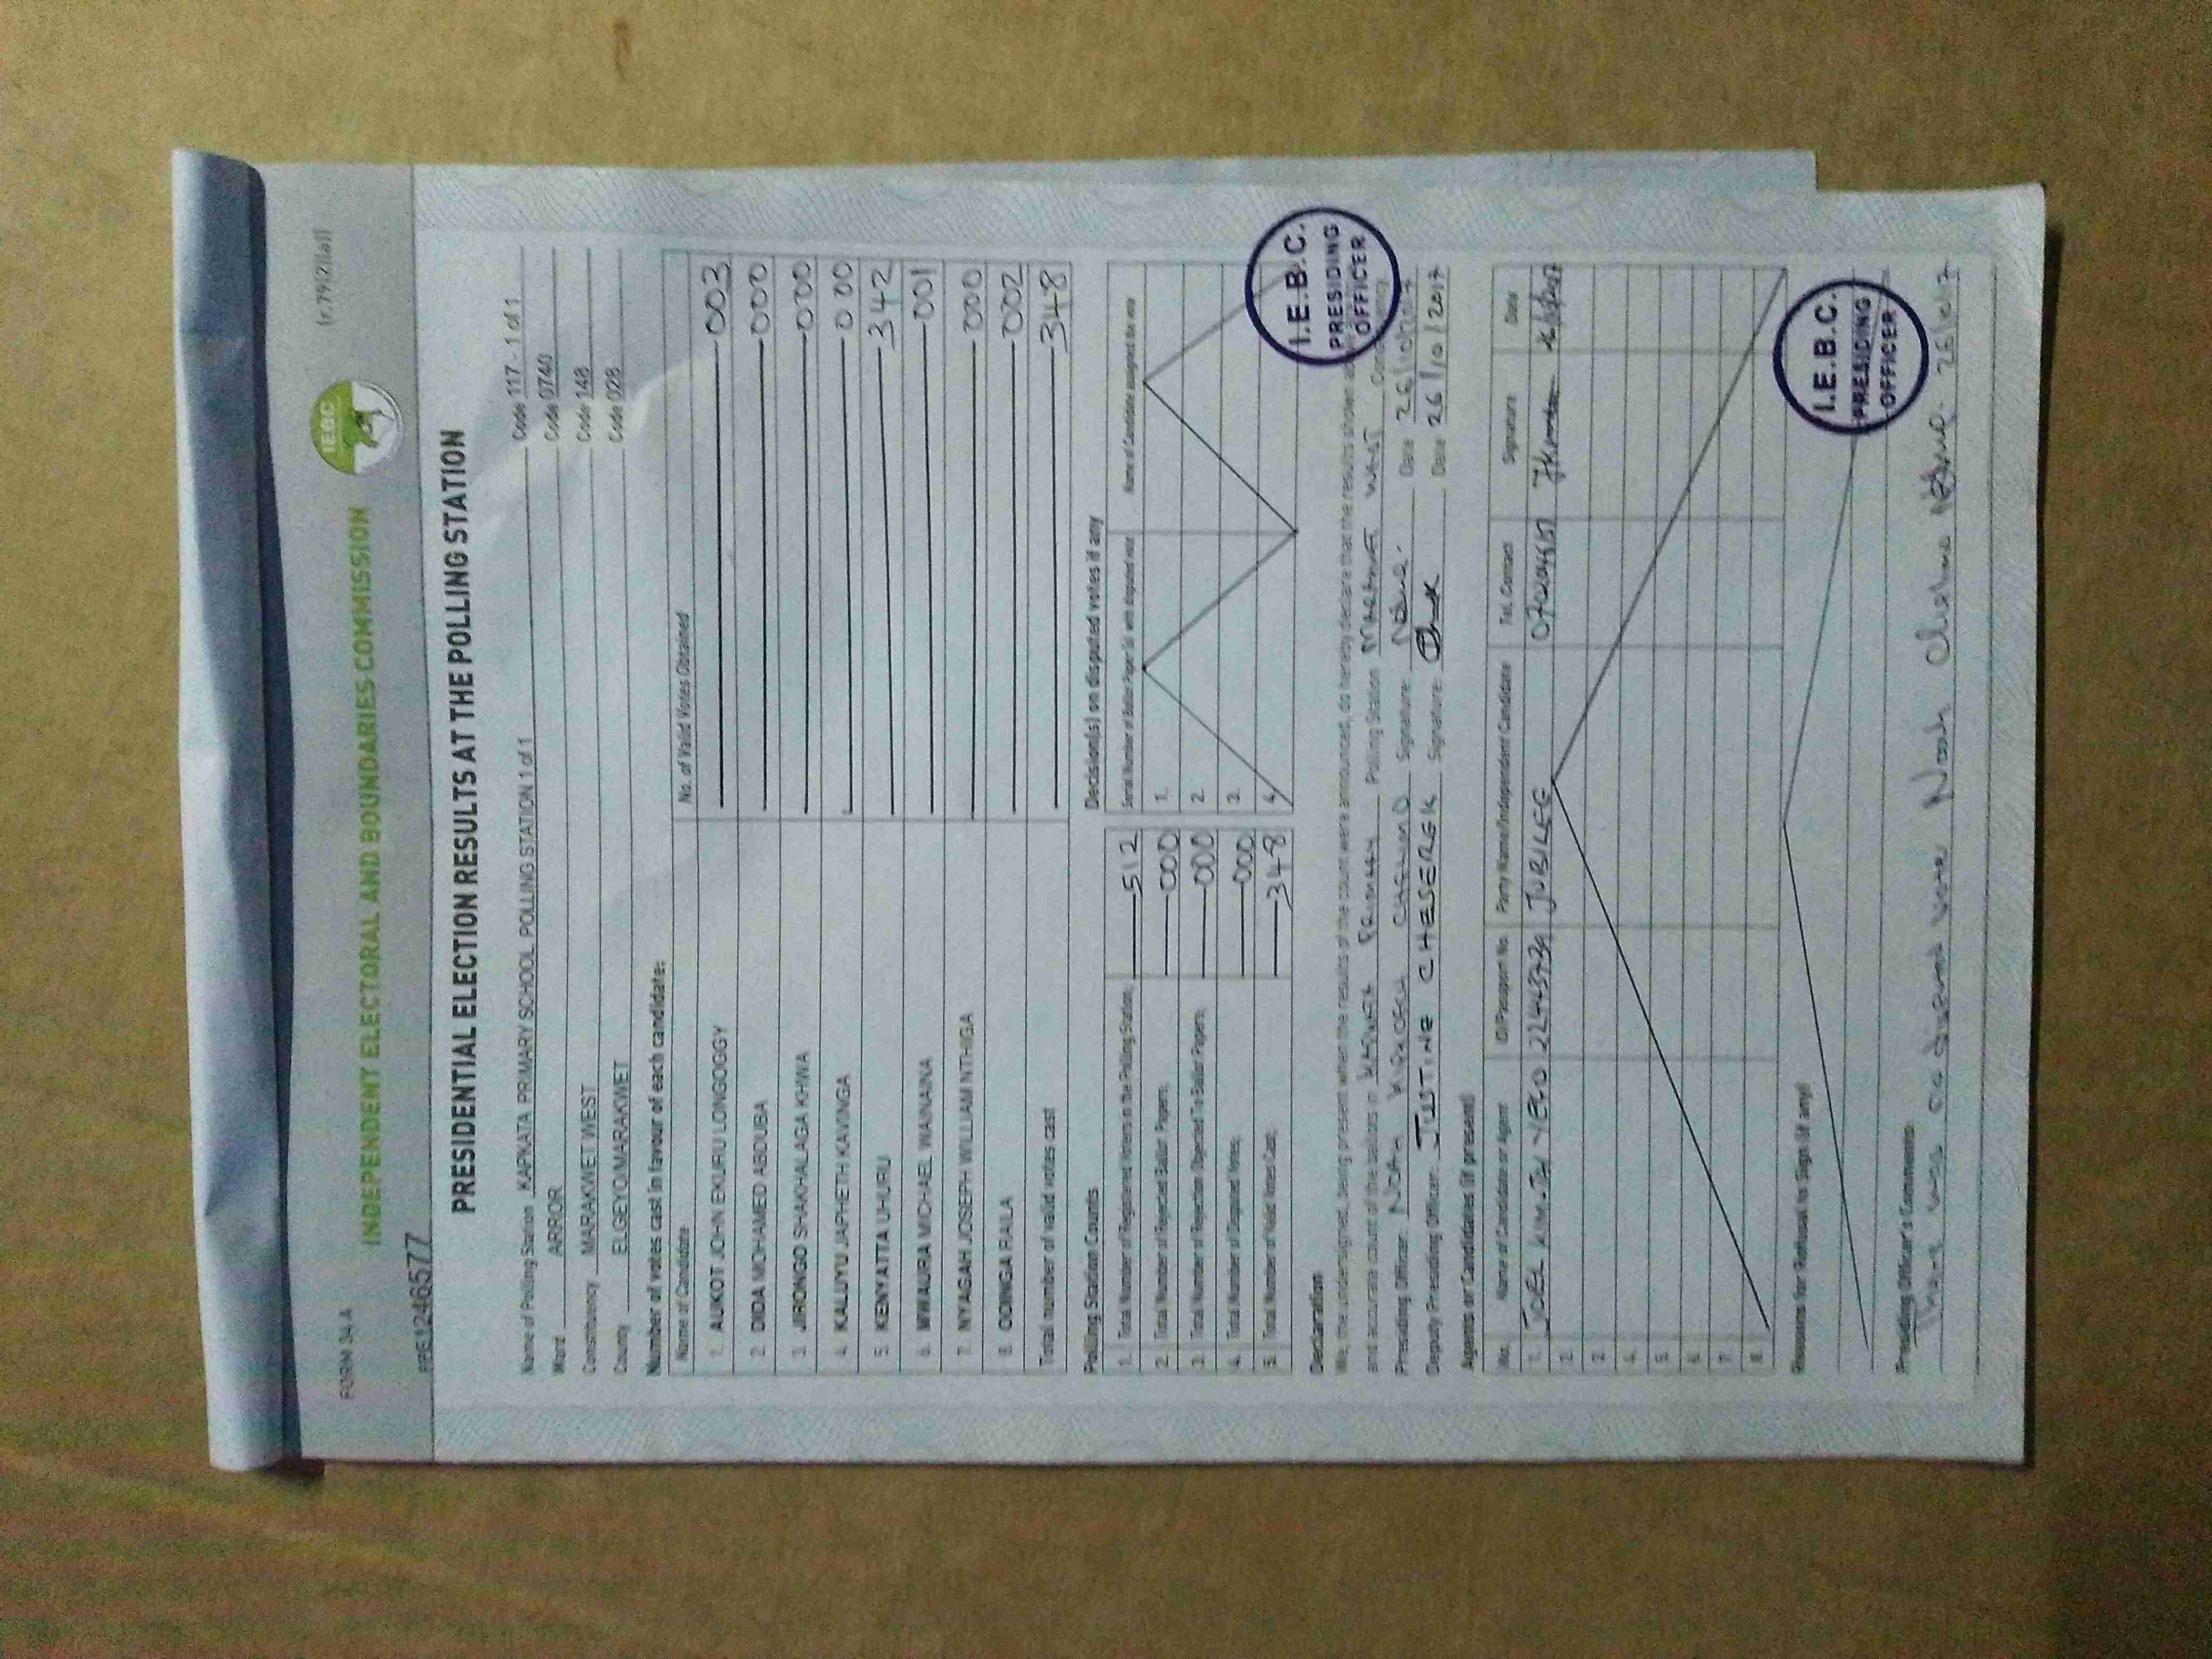 FORM 34 A
(r.79(2)(a))
IEBC
INDEPENDENT ELECTORAL AND BOUNDARIES COMMISSION
PRESIDENTIAL ELECTION RESULTS AT THE POLLING STATION
Name of Polling Station KAPKATA PRIMARY SCHOOL POLLING STATION 1 of 1 Code 117 - 1 of 1
Ward ARROR Code 0740
Constituency MARAKWET WEST Code 148
County ELGEYO/MARAKWET Code 028
Number of votes cast in favour of each candidate:
Name of Candidate No. of Valid Votes Obtained
1. AUKOT JOHN EKURU LONGOGGY 003
2. DIDA MOHAMED ABDUBA 000
3. JIRONGO SHAKHALAGA KHWA 000
4. KALUYU JAPHETH KAVINGA 000
5. KENYATTA UHURU 342
6. MWAURA MICHAEL WAINAINA 001
7. NYAGAH JOSEPH WILLIAM NTHIGA 000
8. ODINGA RAILA 002
Total number of valid votes cast 348
Polling Station Counts
1. Total Number of Registered Voters in the Polling Station: 512
2. Total Number of Rejected Ballot Papers: 000
3. Total Number of Rejection Objected To Ballot Papers: 000
4. Total Number of Disputed Votes: 000
5. Total Number of Valid Votes Cast: 348
Decision(s) on disputed votes if any
Serial Number of Ballot Paper (s) with disputed vote Name of Candidate assigned the vote
1.
2.
3.
4.
Declaration
We, the undersigned, being present when the results of the count were announced, do hereby declare that the results shown
and accurate count of the ballots in PRIMARY Polling Station MARAKWET WEST
Presiding Officer: NOAH Signature: Date 26/10/2017
Deputy Presiding Officer: JUSTINE CHESEREK Signature: Date 26/10/2017
I.E.B.C.
PRESIDING
OFFICER
Agents or Candidates (if present)
No. Name of Candidate or Agent ID/Passport No. Party Name/Independent Candidate Tel. Contact Signature Date
1. JOEL JUBILEE
2.
3.
4.
5.
6.
7.
8.
Reasons for Refusal to Sign (if any)
I.E.B.C.
PRESIDING
OFFICER
Presiding Officer's Comments:
There was no Noah